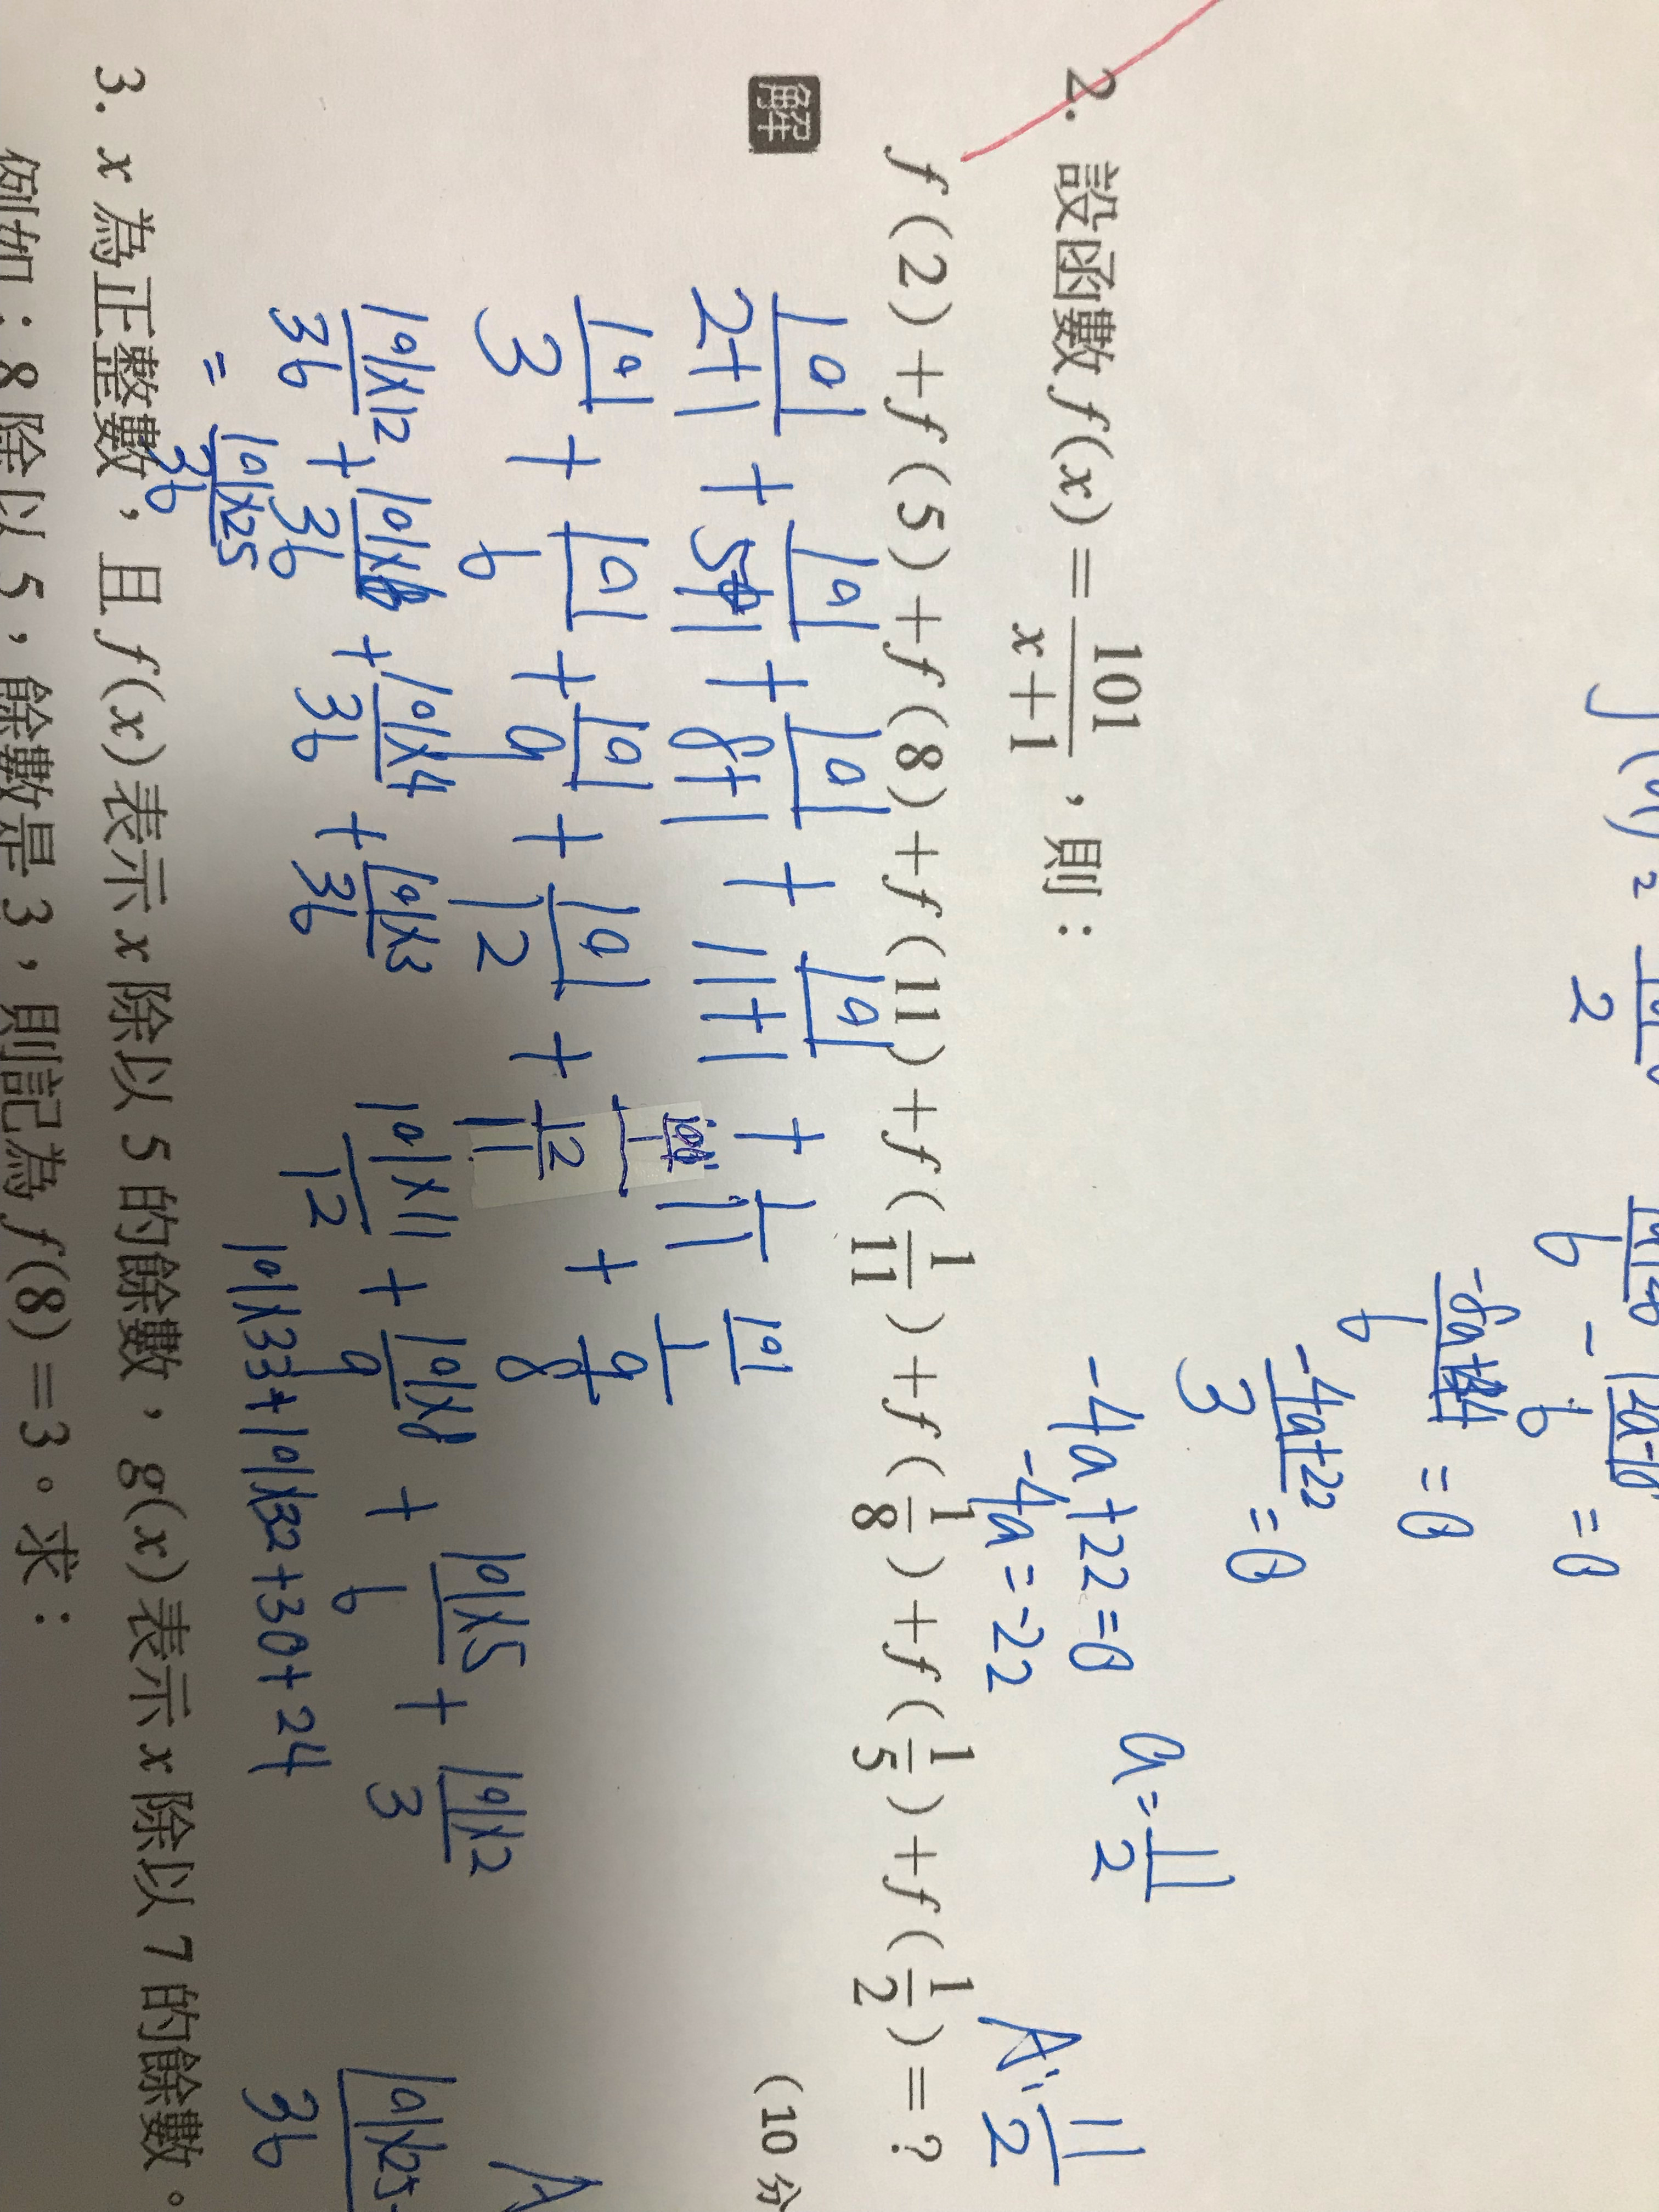 f(a) = 
2
6 - 6 = 0
= 0
6
-4a+22 = 0
3
-4a+22=0 a=11/2
-4a=-22
A: 11/2
2. 設函數 f(x) = 101/(x+1),則:
f(2)+f(5)+f(8)+f(11)+f(1/11)+f(1/8)+f(1/5)+f(1/2)=?
(10 分
解
101/(2+1) + 101/(5+1) + 101/(8+1) + 101/(11+1) +
101/3 + 101/6 + 101/9 + 101/12 + 12/11 + 9/8
101×12/36 + 101×6/36 + 101×4/36 + 101×3/36 101×11/12 + 101×8/9 + 101×5/6 + 101×2/3
= 101×25/36 101×33+101×32+30+24
101×25
36
A
3. x 為正整數,且 f(x) 表示 x 除以 5 的餘數,g(x) 表示 x 除以 7 的餘數。
例如:8 除以 5,餘數是 3,則記為 f(8)=3。求: